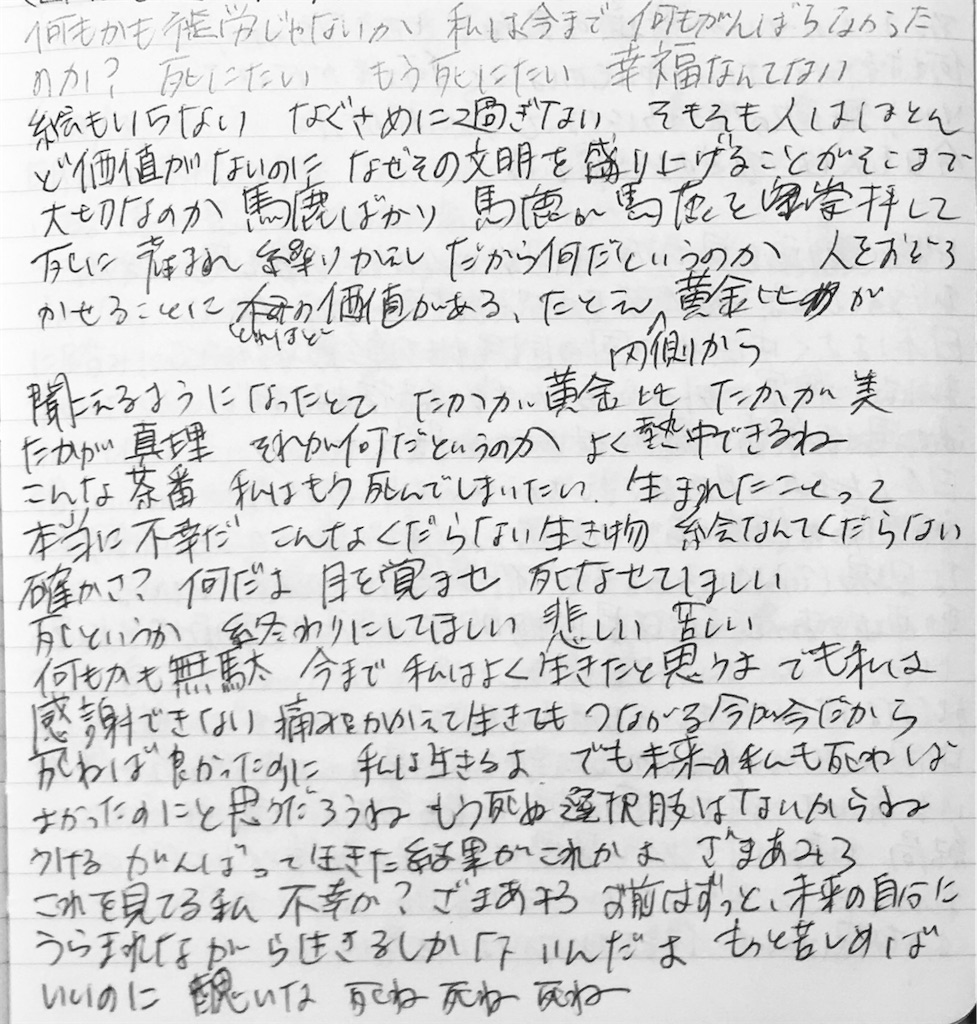 何もかも徒労じゃないか 私は今まで 何もがんばらなかった
のか? 死にたい もう死にたい 幸福なんてない
絵もいらない なぐさめに過ぎない そもそも人はほとん
ど価値がないのに なぜその文明を盛り上げることがそこまで
大切なのか 馬鹿ばかり 馬鹿が馬鹿を崇拝して
死に 産まれ 繰りかえし だから何だというのか 人をおどろ
かせることに どれほど 価値がある、たとえ 黄金比が
内側から
聞こえるようになったとて たかが黄金比 たかが美
たかが真理 それが何だというのか よく熱中できるね
こんな茶番 私はもう死んでしまいたい 生まれたことって
本当に不幸だ こんなくだらない生き物 絵なんてくだらない
確かさ? 何だよ 目を覚ませ 死なせてほしい
死というか 終わりにしてほしい 悲しい 苦しい
何もかも無駄 今まで私はよく生きたと思うよ でも私は
感謝できない 痛みをかかえて生きても つながる今が今だから
死ねば良かったのに 私は生きるよ でも未来の私も死ねば
よかったのにと思うだろうね もう死ぬ選択肢はないからね
うける がんばって生きた結果がこれかよ ざまあみろ
これを見てる私 不幸か? ざまあみろ お前はずっと、未来の自分に
うらまれながら生きるしかないんだよ もっと苦しめば
いいのに 醜いな 死ね 死ね 死ね